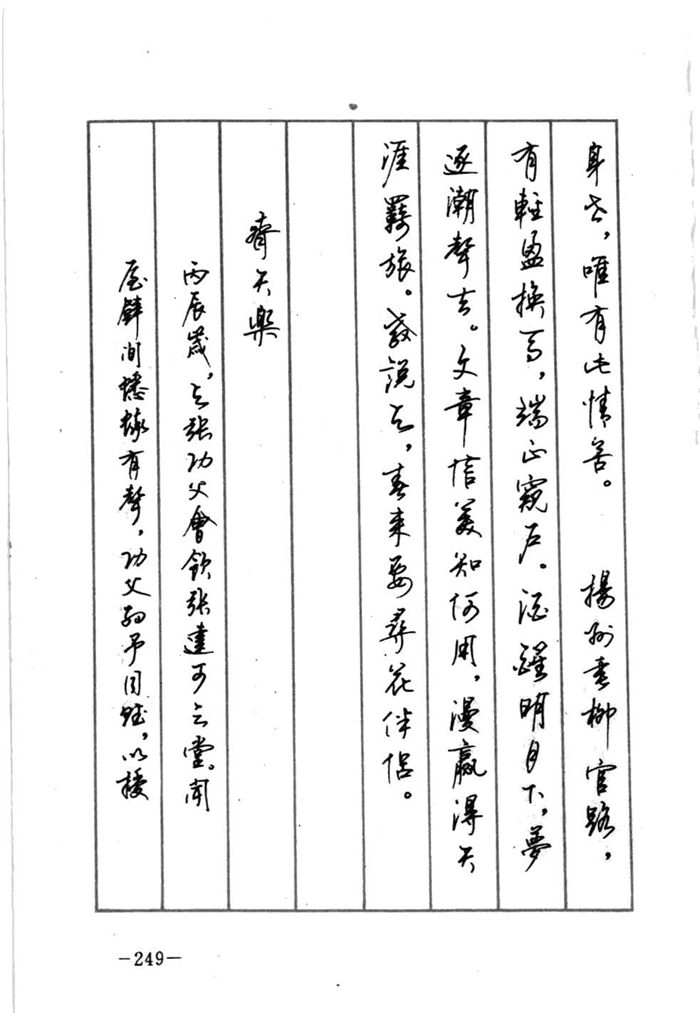 身世，唯有此情苦。 揚州垂柳官路，
有輕盈換馬，端正窺户。酒醒明月下，夢
逐潮聲去。文章信美知何用，漫贏得天
涯羈旅。教説与，春来要尋花伴侣。
齊天樂
丙辰歲，与張功父會飲張達可之堂。聞
屋壁間蟋蟀有聲，功父約予同賦，以授
-249-